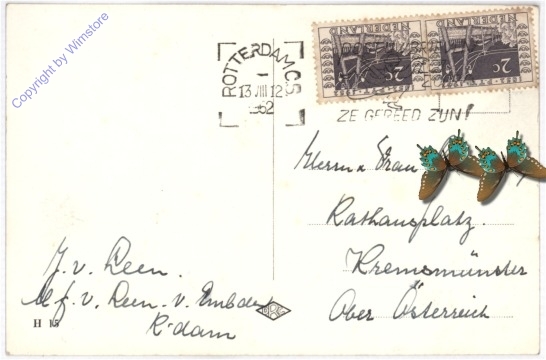 Copyright by Wimstore
ROTTERDAM C.S
13 VIII 12
1952
NEDERLAND
2c
NEDERLAND
2c
ZE GEREED ZIJN!
Herrn & Frau
Rathausplatz.
Kremsmünster
Ober Österreich
J. v. Reen.
M. f. v. Reen - v. Embden
R'dam
H 15